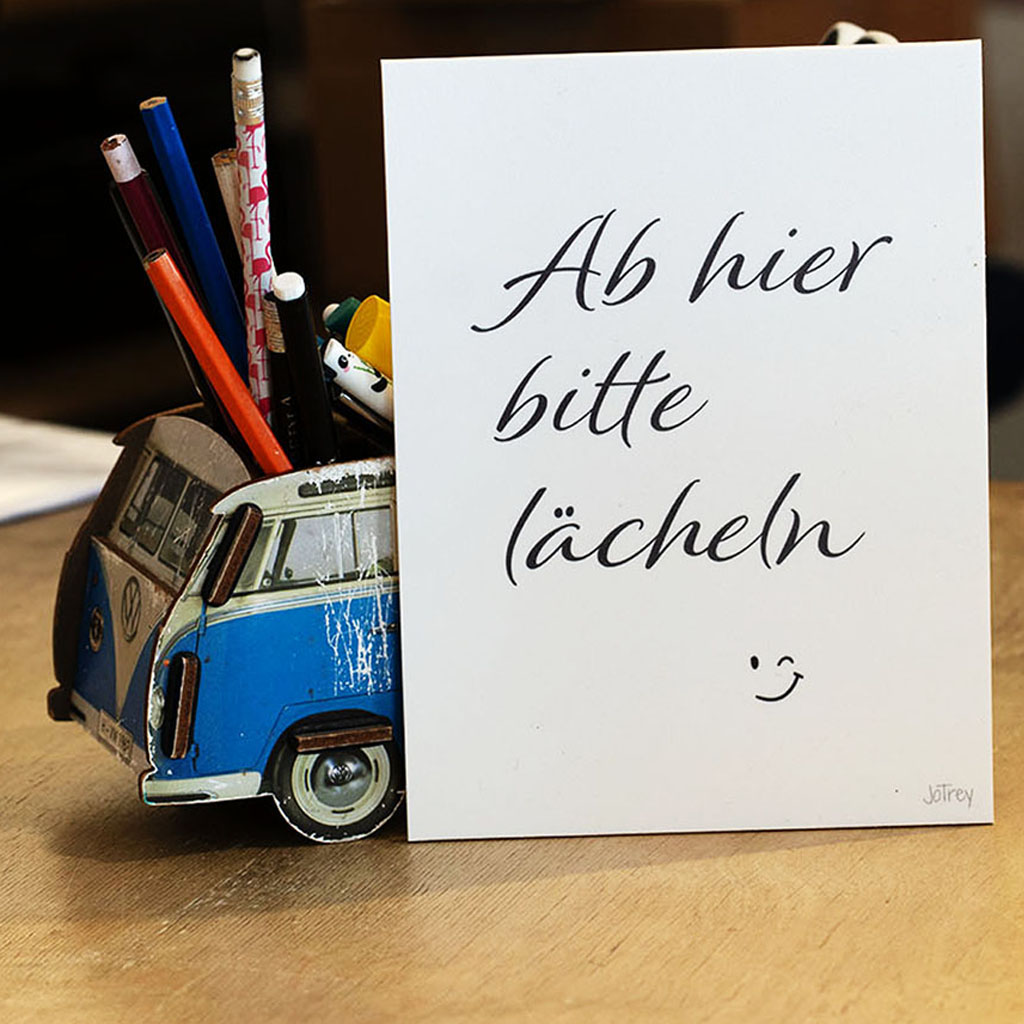 Ab hier
bitte
lächeln
JoTrey